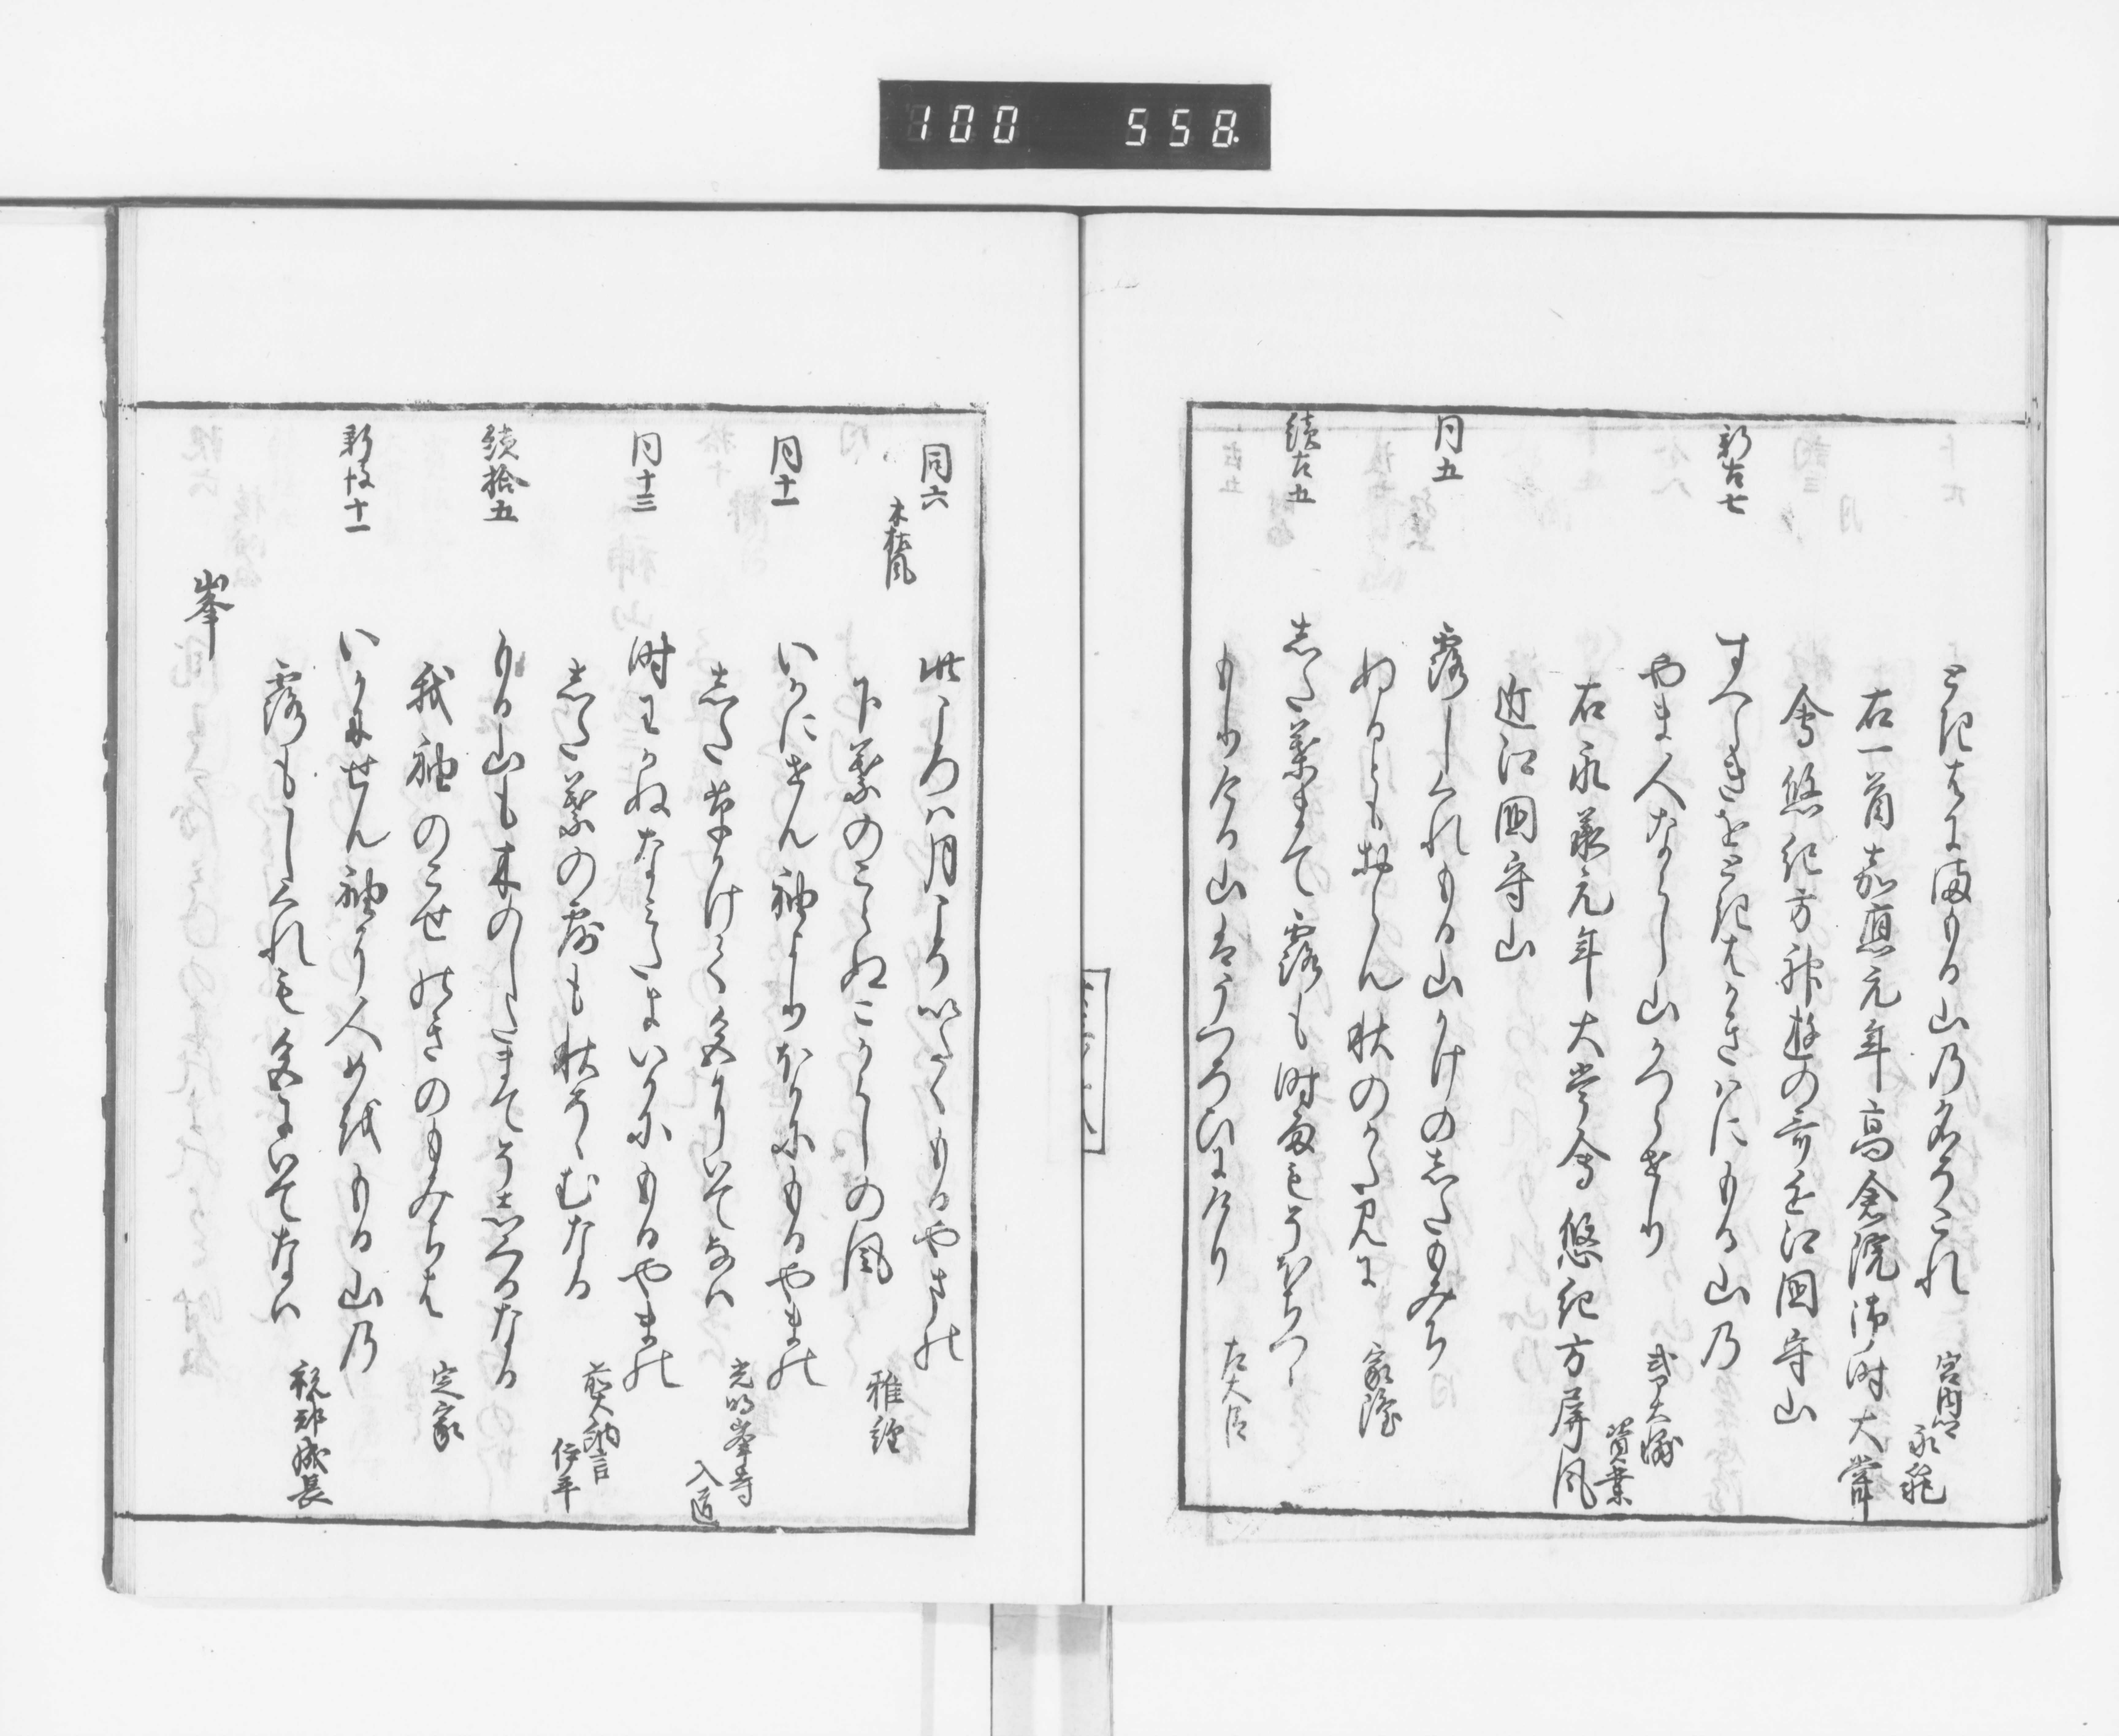 100 558
ときはにまもる山の名そこれ
宮内卿永範
右一首嘉應元年高倉院御時大甞
會悠紀方神遊の哥近江國守山
新古七
すへらきをときはかきはにもる山の
やま人ならし山かつらせり
式ア大輔資業
右永承元年大甞會悠紀方屏風
近江國守山
同五
露しくれもる山かけのしたもみち
ぬるともおらん秋のかたみに
家隆
續古五
した葉まて露も時雨もそほちつゝ
もり今日山はうつろひにけり
左大臣
同六
木枯風
此ころは月こそいたくもるやまの
下葉のこらぬこからしの風
雅經
同十一
いかにせん袖よりほかにもるやまの
した草かけて色にいてなは
光明峯寺入道
同十三
時わかぬなみたはいかにもるやまの
した葉の露も秋そゝむなる
前大納言伊平
續拾五
もる山も木のしたまてそしくるなる
我袖のこせ軒のもみちは
定家
新後十一
いかにせん袖に人めをもる山の
露もしくれも色にいてなは
祝部成長
峯